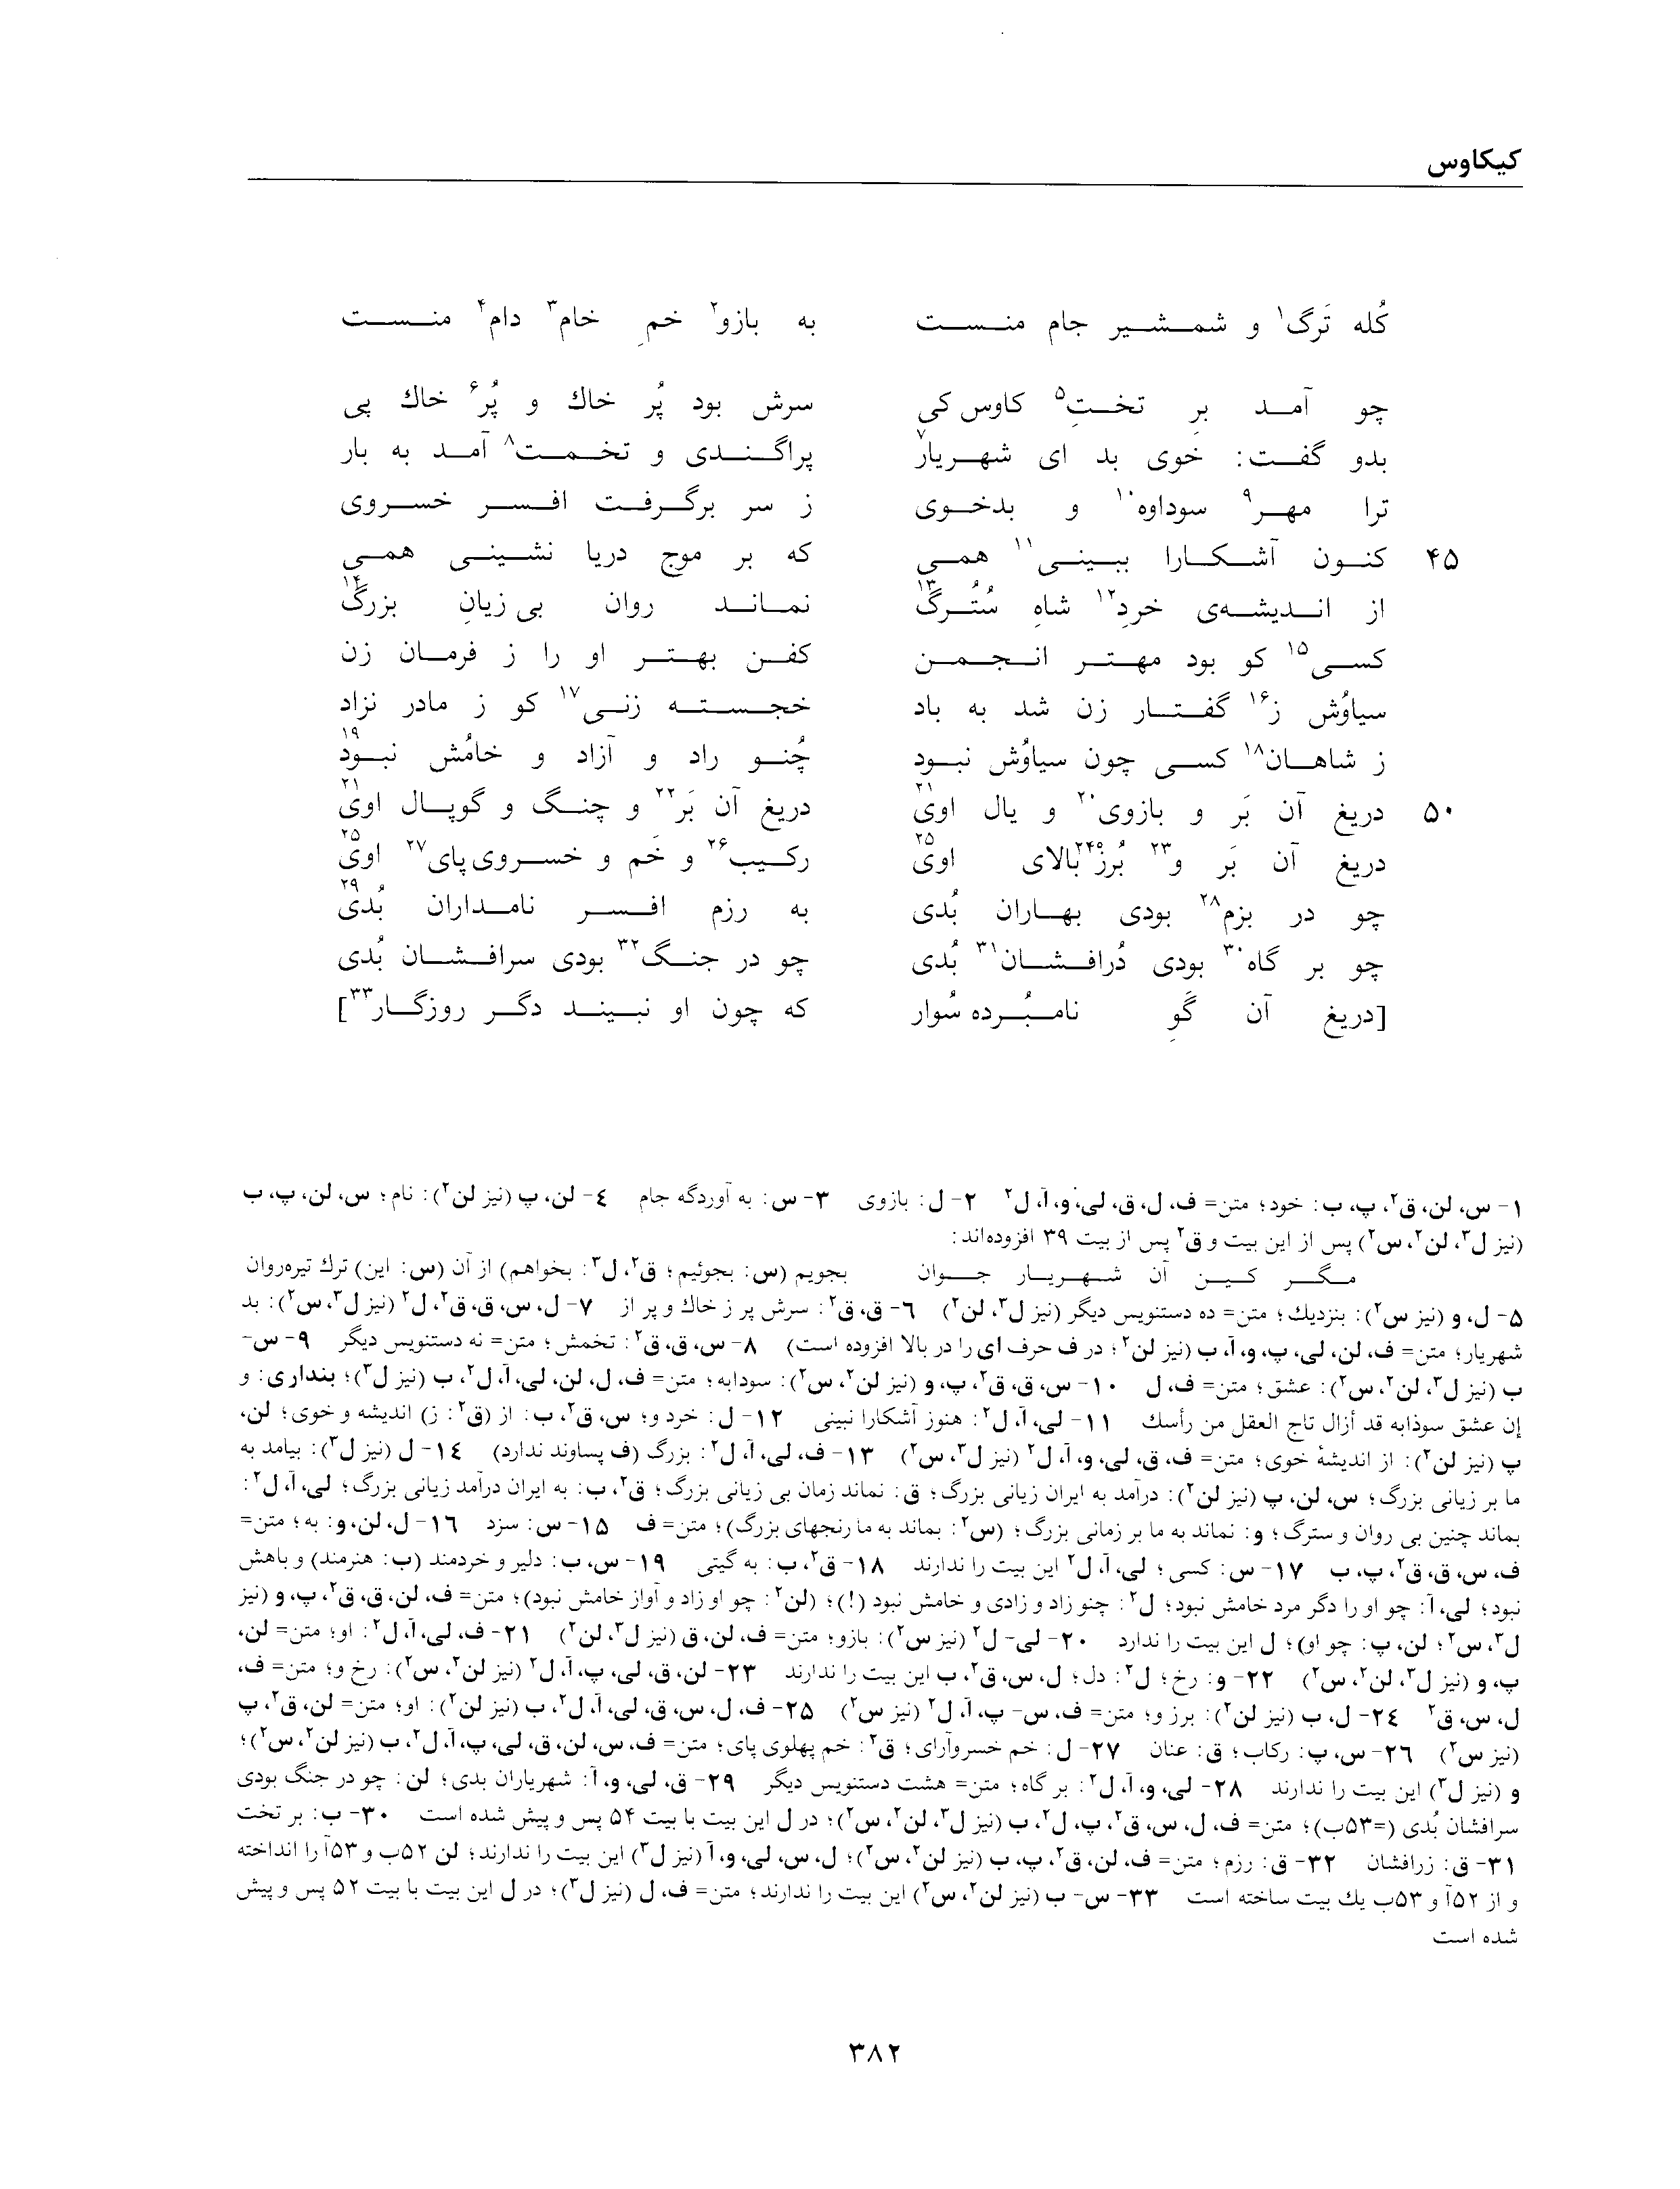 کیکاوس
کُله تَرگ۱ و شمشیر جام منست به بازو۲ خمِ خام۳ دام۴ منست
چو آمد برِ تختِ۵ کاوس کی سرش بود پُر خاك و پُر۶ خاك پی
بدو گفت: خوی بد ای شهریار۷ پراگندی و تخمت۸ آمد به بار
ترا مهر۹ سوداوه۱۰ و بدخوی ز سر برگرفت افسر خسروی
۴۵ کنون آشکارا ببینی۱۱ همی که بر موج دریا نشینی همی
از اندیشه‌ی خردِ۱۲ شاهِ سُتُرگ۱۳ نماند روان بی زیانِ بزرگ۱۴
کسی۱۵ کو بود مهتر انجمن کفن بهتر او را ز فرمان زن
سیاوُش ز۱۶ گفتار زن شد به باد خجسته زنی۱۷ کو ز مادر نزاد
ز شاهان۱۸ کسی چون سیاوُش نبود چُنو راد و آزاد و خامُش نبود۱۹
۵۰ دریغ آن بَر و بازوی۲۰ و یال اوی۲۱ دریغ آن بَر۲۲ و چنگ و گوپال اوی۲۱
دریغ آن بَر و۲۳ بُرز۲۴بالای اوی۲۵ رکیب۲۶ و خَم و خسروی پای۲۷ اوی۲۵
چو در بزم۲۸ بودی بهاران بُدی به رزم افسر نامداران بُدی۲۹
چو بر گاه۳۰ بودی دُرافشان۳۱ بُدی چو در جنگ۳۲ بودی سرافشان بُدی
[دریغ آن گَوِ نامبُرده سُوار که چون او نبیند دگر روزگار۳۳]
۱- س، لن، ق۲، پ، ب: خود؛ متن= ف، ل، ق، لی، و، آ، ل۲ ۲- ل: بازوی ۳- س: به آوردگه جام ٤- لن، پ (نیز لن۲): نام؛ س، لن، پ، ب
(نیز ل۳، لن۲، س۲) پس از این بیت و ق۲ پس از بیت ۳۹ افزوده‌اند:
مگر کین آن شهریار جوان بجویم (س: بجوئیم؛ ق۲، ل۳: بخواهم) از آن (س: این) ترك تیره‌روان
۵- ل، و (نیز س۲): بنزدیك؛ متن= ده دستنویس دیگر (نیز ل۳، لن۲) ۶- ق، ق۲: سرش پر ز خاك و پر از ۷- ل، س، ق، ق۲، ل۲ (نیز ل۳، س۲): بد
شهریار؛ متن= ف، لن، لی، پ، و، آ، ب (نیز لن۲؛ در ف حرف ای را در بالا افزوده است) ۸- س، ق، ق۲: تخمش؛ متن= نه دستنویس دیگر ۹- س-
ب (نیز ل۳، لن۲، س۲): عشق؛ متن= ف، ل ۱۰- س، ق، ق۲، پ، و (نیز لن۲، س۲): سودابه؛ متن= ف، ل، لن، لی، آ، ل۲، ب (نیز ل۳)؛ بنداری: و
إن عشق سوذابه قد أزال تاج العقل من رأسك ۱۱- لی، آ، ل۲: هنوز آشکارا نبینی ۱۲- ل: خرد و؛ س، ق۲، ب: از (ق۲: ز) اندیشه و خوی؛ لن،
پ (نیز لن۲): از اندیشهٔ خوی؛ متن= ف، ق، لی، و، آ، ل۲ (نیز ل۳، س۲) ۱۳- ف، لی، آ، ل۲: بزرگ (ف پساوند ندارد) ۱٤- ل (نیز ل۳): بیامد به
ما بر زیانی بزرگ؛ س، لن، پ (نیز لن۲): درآمد به ایران زیانی بزرگ؛ ق: نماند زمان بی زیانی بزرگ؛ ق۲، ب: به ایران درآمد زیانی بزرگ؛ لی، آ، ل۲:
بماند چنین بی روان و سترگ؛ و: نماند به ما بر زمانی بزرگ؛ (س۲: بماند به ما رنجهای بزرگ)؛ متن= ف ۱۵- س: سزد ۱۶- ل، لن، و: به؛ متن=
ف، س، ق، ق۲، پ، ب ۱۷- س: کسی؛ لی، آ، ل۲ این بیت را ندارند ۱۸- ق۲، ب: به گیتی ۱۹- س، ب: دلیر و خردمند (ب: هنرمند) و باهش
نبود؛ لی، آ: چو او را دگر مرد خامش نبود؛ ل۲: چنو زاد و زادی و خامش نبود (!)؛ (لن۲: چو او زاد و آواز خامش نبود)؛ متن= ف، لن، ق، ق۲، پ، و (نیز
ل۳، س۲؛ لن، پ: چو او)؛ ل این بیت را ندارد ۲۰- لی- ل۲ (نیز س۲): بازو؛ متن= ف، لن، ق (نیز ل۳، لن۲) ۲۱- ف، لی، آ، ل۲: او؛ متن= لن،
پ، و (نیز ل۳، لن۲، س۲) ۲۲- و: رخ؛ ل۲: دل؛ ل، س، ق۲، ب این بیت را ندارند ۲۳- لن، ق، لی، پ، آ، ل۲ (نیز لن۲، س۲): رخ و؛ متن= ف،
ل، س، ق۲ ۲٤- ل، ب (نیز لن۲): برز و؛ متن= ف، س- پ، آ، ل۲ (نیز س۲) ۲۵- ف، ل، س، ق، لی، آ، ل۲، ب (نیز لن۲): او؛ متن= لن، ق۲، پ
(نیز س۲) ۲۶- س، پ: رکاب؛ ق: عنان ۲۷- ل: خم خسروآرای؛ ق۲: خم پهلوی پای؛ متن= ف، س، لن، ق، لی، پ، آ، ل۲، ب (نیز لن۲، س۲)؛
و (نیز ل۳) این بیت را ندارند ۲۸- لی، و، آ، ل۲: بر گاه؛ متن= هشت دستنویس دیگر ۲۹- ق، لی، و، آ: شهریاران بدی؛ لن: چو در جنگ بودی
سرافشان بُدی (=۵۳ب)؛ متن= ف، ل، س، ق۲، پ، ل۲، ب (نیز ل۳، لن۲، س۲)؛ در ل این بیت با بیت ۵۴ پس و پیش شده است ۳۰- ب: بر تخت
۳۱- ق: زرافشان ۳۲- ق: رزم؛ متن= ف، لن، ق۲، پ، ب (نیز لن۲، س۲)؛ ل، س، لی، و، آ (نیز ل۳) این بیت را ندارند؛ لن ۵۲ب و ۵۳آ را انداخته
و از ۵۲آ و ۵۳ب یك بیت ساخته است ۳۳- س- ب (نیز لن۲، س۲) این بیت را ندارند؛ متن= ف، ل (نیز ل۳)؛ در ل این بیت با بیت ۵۲ پس و پیش
شده است
۳۸۲